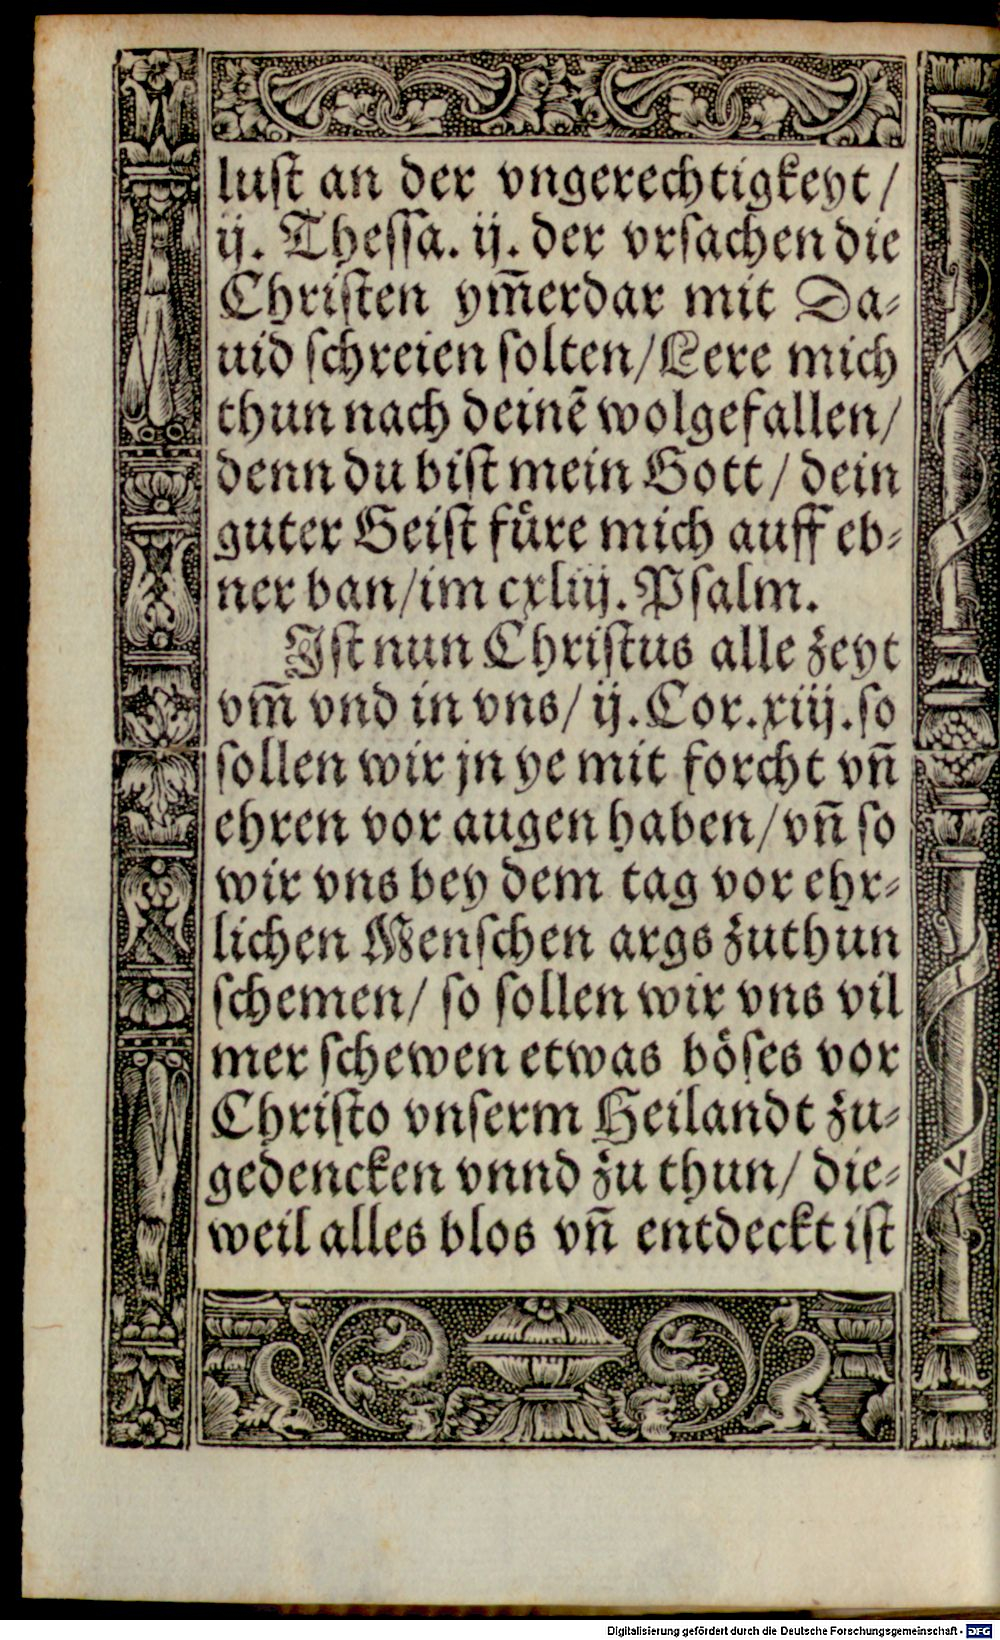 lust an der vngerechtigkeyt /
ij. Thessa. ij. der vrsachen die
Christen ym̃erdar mit Da⸗
uid schreien solten / Lere mich
thun nach deinẽ wolgefallen /
denn du bist mein Gott / dein
guter Geist fu᷑re mich auff eb⸗
ner ban / im cxliij. Psalm.
Ist nun Christus alle zeyt
vm̃ vnd in vns / ij. Cor. xiij. so
sollen wir jn ye mit forcht vñ
ehren vor augen haben / vñ so
wir vns bey dem tag vor ehr⸗
lichen Menschen args zuthun
schemen / so sollen wir vns vil
mer schewen etwas böses vor
Christo vnserm Heilandt zu⸗
gedencken vnnd zu thun / die⸗
weil alles blos vñ entdeckt ist
Digitalisierung gefördert durch die Deutsche Forschungsgemeinschaft - DFG